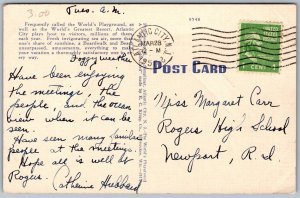 3.00
Tues. A.M.
9548
Frequently called the World's Playground, as
well as the World's Greatest Resort, Atlantic
City plays host to visitors, millions of them
each year. Fresh invigorating sea air, more than
one's share of sunshine, a Boardwalk and Beach
Foggy weather
ATLANTIC CITY, N.J.
MAR 28
POST CARD
Have been enjoying
the meetings, the
people, and the ocean
view when it can be
seen.
Have seen many familiar
people at the meetings.
Hope all is well at
Rogers.
Catherine Hubbard
Miss Margaret Carr
Rogers High School
Newport, R.I.